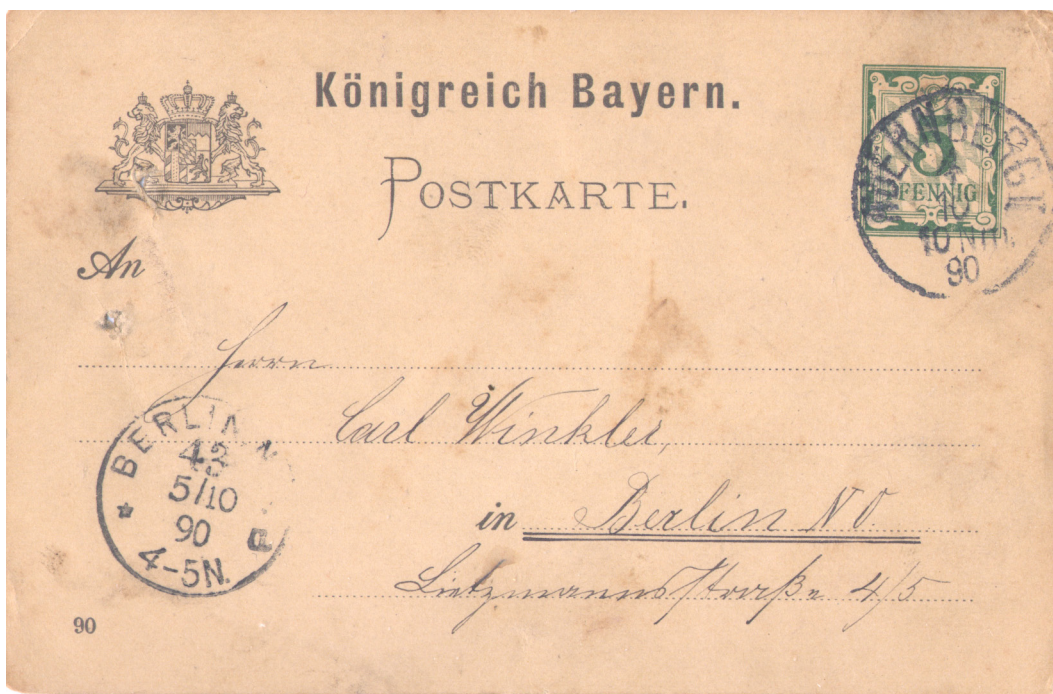 Königreich Bayern.
POSTKARTE.
5
PFENNIG
NUERNBERG I
10
10 NM
90
An
Herrn
Carl Winkler,
in Berlin NO.
Lietzmannsstraße 4/5
BERLIN N
43
5/10
90
4-5N.
a
90